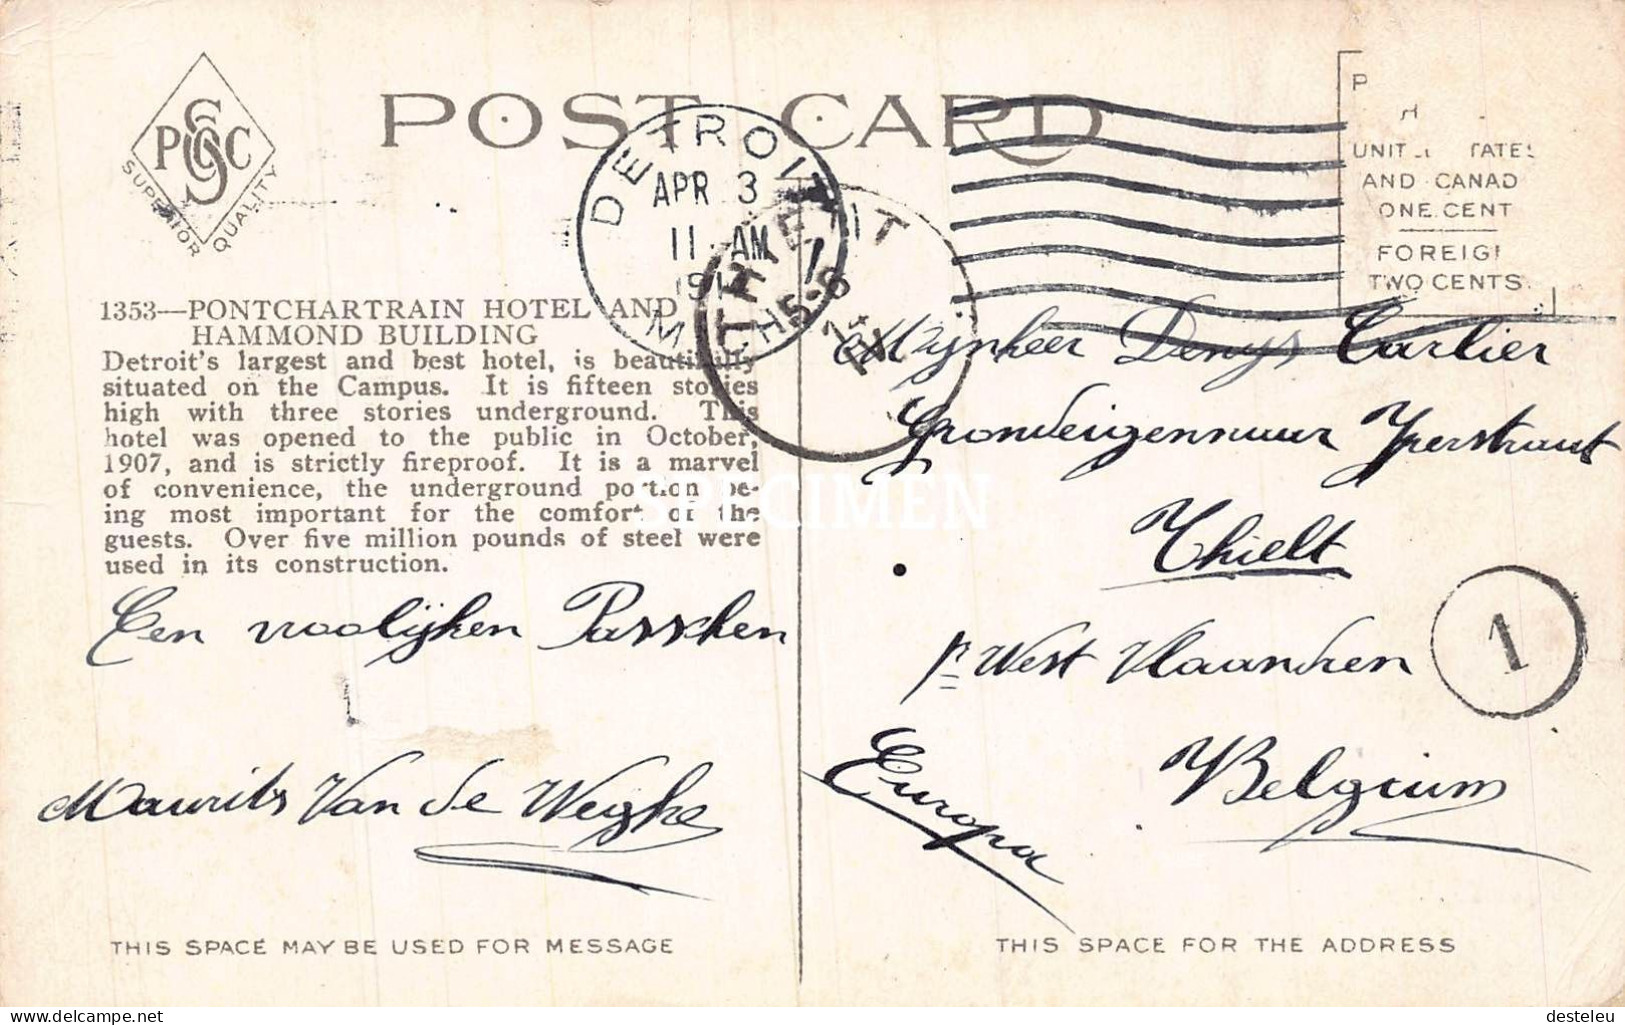 POST CARD
PSCC
SUPERIOR QUALITY
DETROIT
APR 3
11 AM
191
MICH
THIELT
5-6
UNIT TATES
AND CANAD
ONE CENT
FOREIG
TWO CENTS.
1353—PONTCHARTRAIN HOTEL AND
HAMMOND BUILDING
Detroit's largest and best hotel, is beautifully
situated on the Campus. It is fifteen stories
high with three stories underground. This
hotel was opened to the public in October,
1907, and is strictly fireproof. It is a marvel
of convenience, the underground portion be-
ing most important for the comfort of the
guests. Over five million pounds of steel were
used in its construction.
Een vroolijken Passchen
Maurits Van de Weghe
THIS SPACE MAY BE USED FOR MESSAGE
Mijnheer Denys Carlier
Grondeigennuur Yperstraat
Thielt
pr West Vlaandren
Belgium
Europa
1
THIS SPACE FOR THE ADDRESS
SPECIMEN
https://www.delcampe.net
desteleu